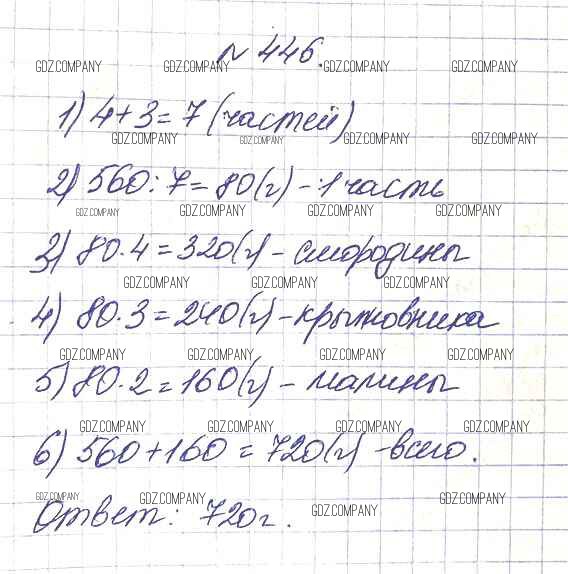 № 446.
1) 4+3=7 (частей)
2) 560:7=80(г) - 1 часть
3) 80·4=320(г) - смородины
4) 80·3=240(г) - крыжовника
5) 80·2=160(г) - малины
6) 560+160=720(г) - всего.
Ответ: 720г.
GDZ.COMPANY GDZ.COMPANY GDZ.COMPANY GDZ.COMPANY
GDZ.COMPANY GDZ.COMPANY GDZ.COMPANY GDZ.COMPANY
GDZ.COMPANY GDZ.COMPANY GDZ.COMPANY GDZ.COMPANY
GDZ.COMPANY GDZ.COMPANY GDZ.COMPANY
GDZ.COMPANY GDZ.COMPANY GDZ.COMPANY GDZ.COMPANY
GDZ.COMPANY GDZ.COMPANY GDZ.COMPANY GDZ.COMPANY
GDZ.COMPANY GDZ.COMPANY GDZ.COMPANY GDZ.COMPANY